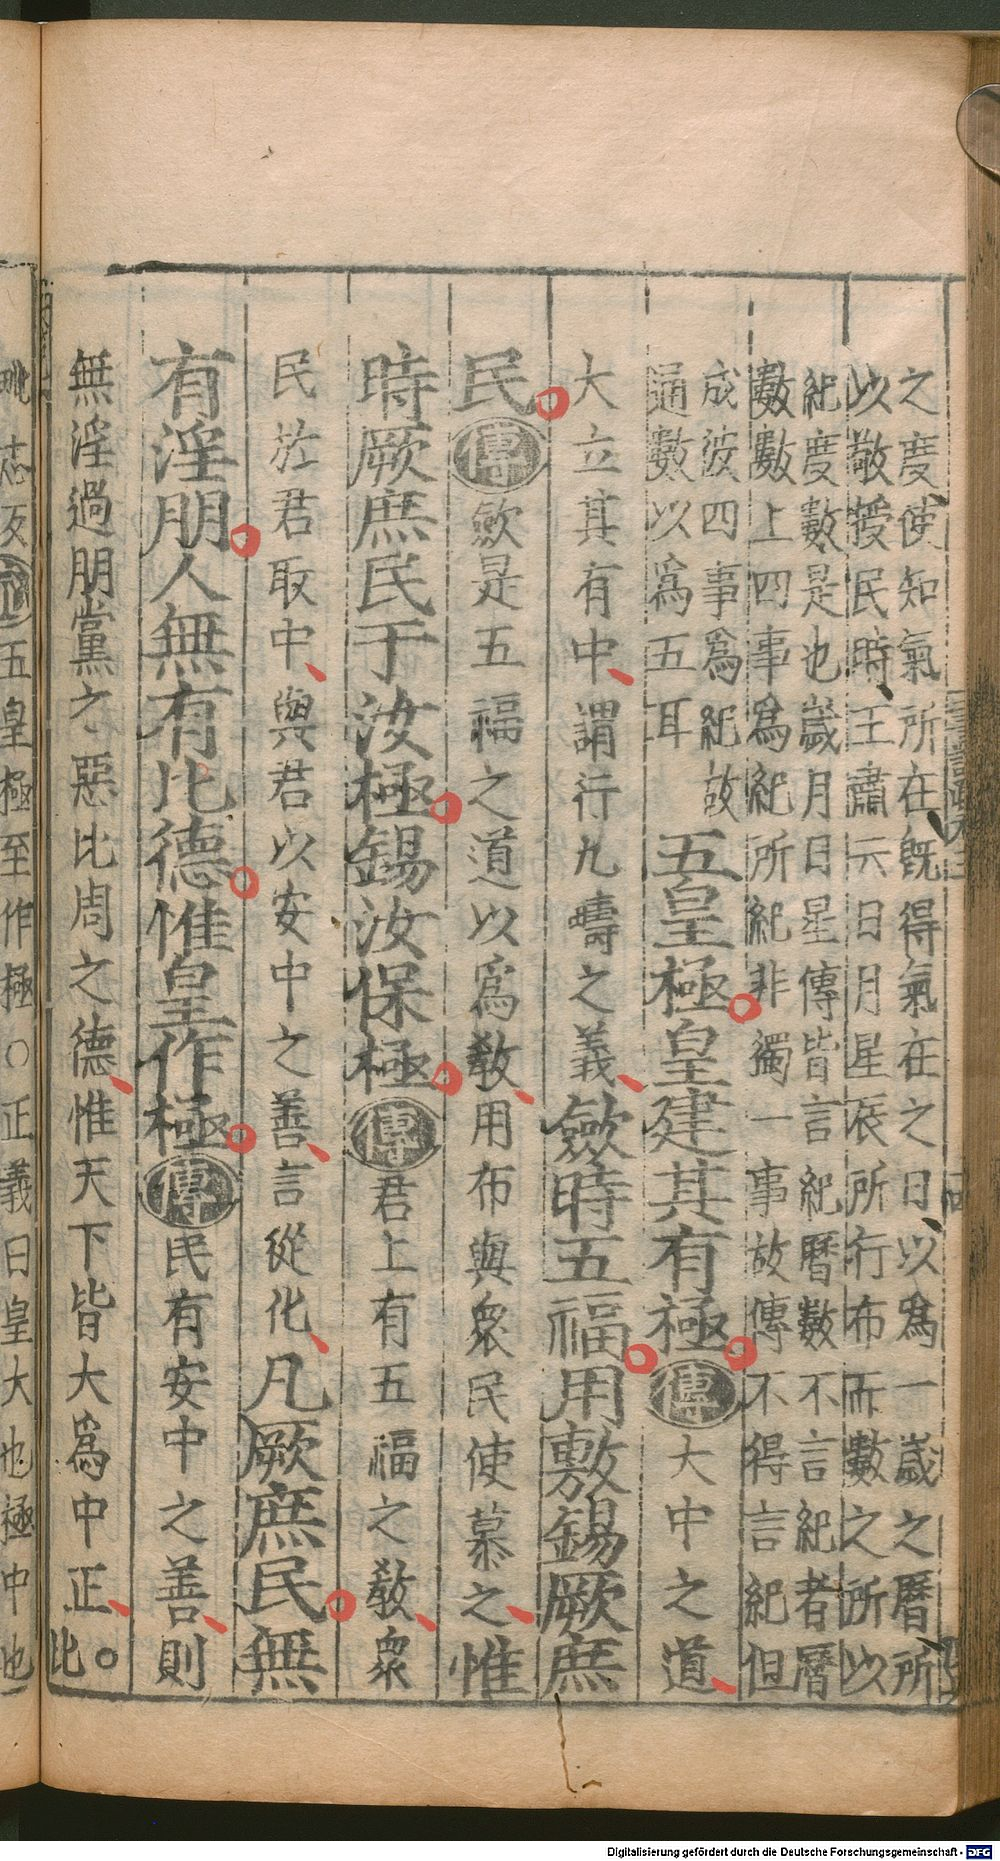 之度使知氣所在旣得氣在之日以爲一歲之曆所
以敬授民時王肅云日月星辰所行布而數之所以
紀度數是也歲月日星傳皆言紀曆數不言紀者曆
數數上四事爲紀所紀非獨一事故傳不得言紀但
成彼四事爲紀故
通數以爲五耳
五皇極皇建其有極傳大中之道
大立其有中謂行九疇之義斂時五福用敷錫厥庶
民傳斂是五福之道以爲敎用布與衆民使慕之惟
時厥庶民于汝極錫汝保極傳君上有五福之敎衆
民於君取中與君以安中之善言從化凡厥庶民無
有淫朋人無有比德惟皇作極傳民有安中之善則
無淫過朋黨之惡比周之德惟天下皆大爲中正○比
志反
五皇極至作極○正義曰皇大也極中也
Digitalisierung gefördert durch die Deutsche Forschungsgemeinschaft - DFG